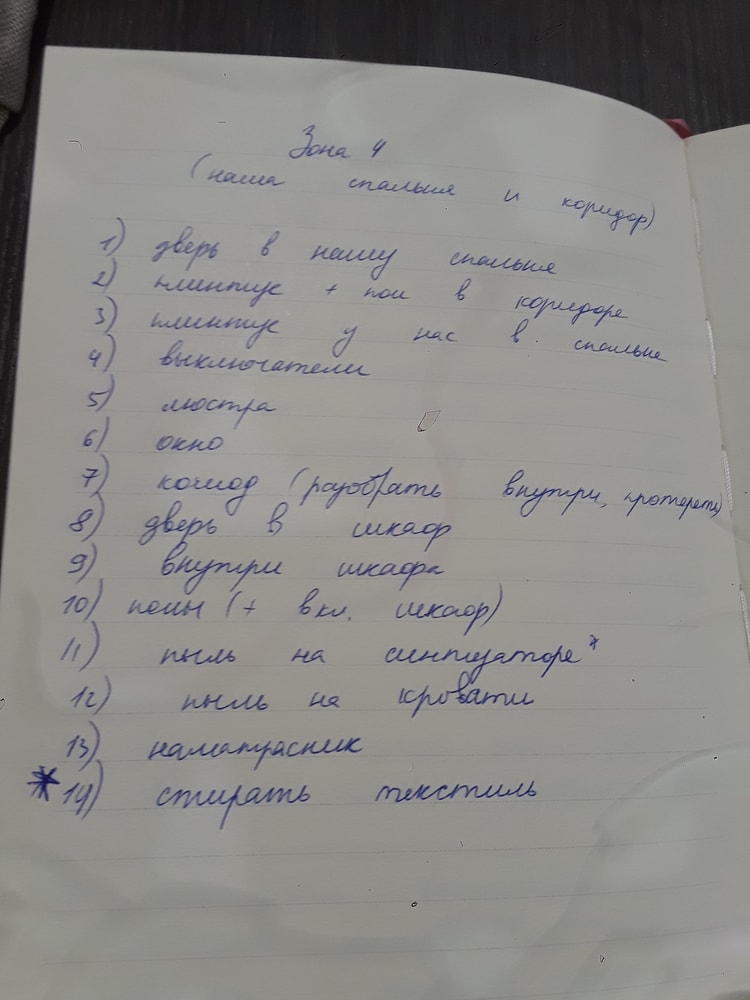 Зона 4
(наша спальня и коридор)
1) дверь в нашу спальня
2) плинтус + пол в коридоре
3) плинтус у нас в спальне
4) выключатели
5) люстра
6) окно
7) комод (разобрать внутри, протереть)
8) дверь в шкаф
9) внутри шкафа
10) полы (+ вкл. шкаф)
11) пыль на синтизаторе*
12) пыль на кровати
13) наматрасник
* 14) стирать текстиль